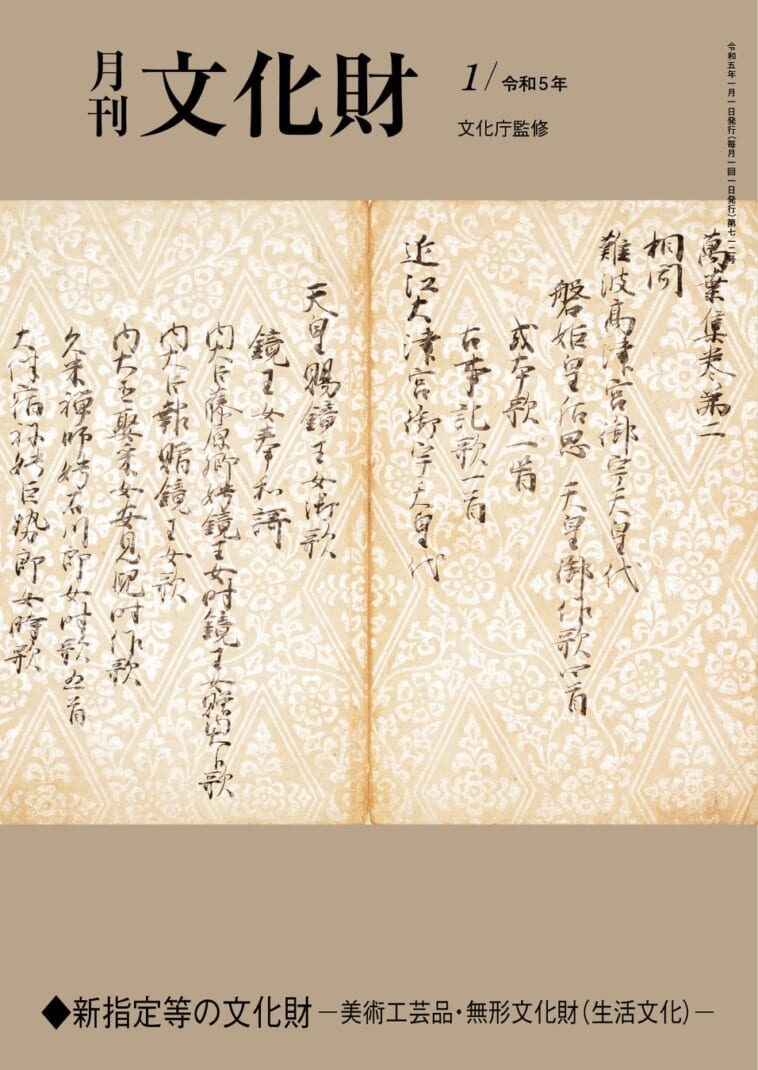 月刊 文化財
1/令和5年
文化庁監修
令和五年一月一日発行(毎月一回一日発行)第七一二号
萬葉集巻第二
相聞
難波高津宮御宇天皇代
磐姫皇后思 天皇御作歌四首
或本歌一首
古事記歌一首
近江大津宮御宇天皇代
天皇賜鏡王女御歌
鏡王女奉和謌
内大臣藤原卿娉鏡王女時鏡王女贈内大臣歌
内大臣報贈鏡王女歌
内大臣娶采女安見児時作歌
久米禅師娉石川郎女時歌五首
大伴宿祢娉巨勢郎女時歌
◆新指定等の文化財―美術工芸品・無形文化財(生活文化)―